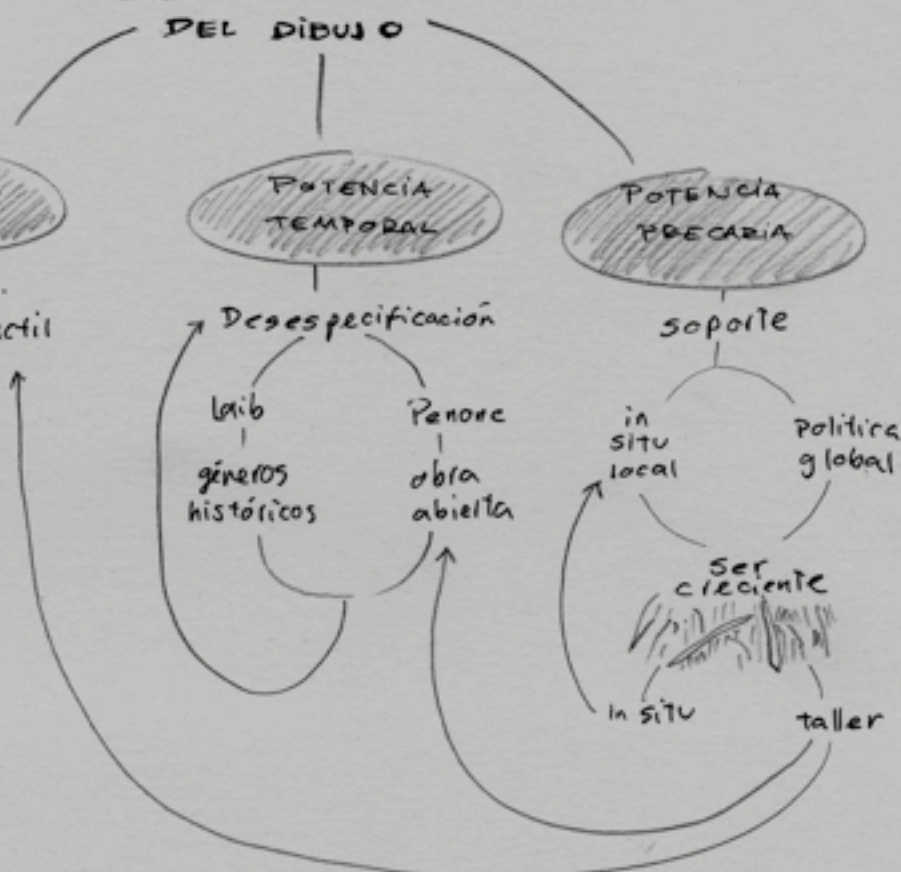 DEL DIBUJO
POTENCIA
TEMPORAL
POTENCIA
PRECARIA
Desespecificación
soporte
Laib
Penone
géneros
históricos
obra
abierta
in
situ
local
política
global
ser
creciente
In situ
taller